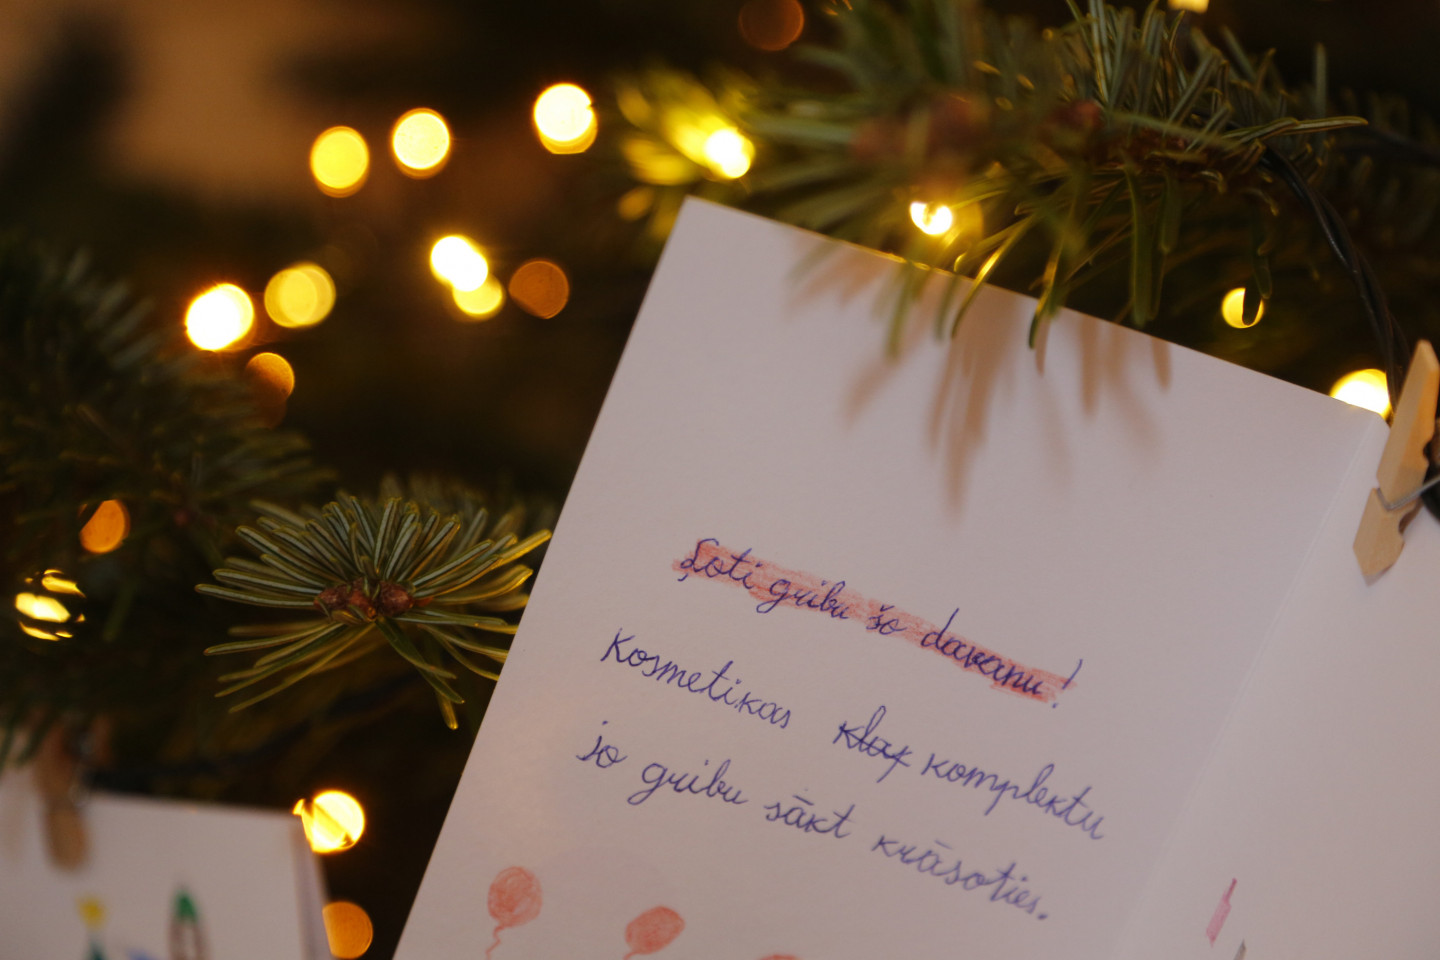 Ļoti gribu šo davanu!
Kosmetikas klax komplektu
jo gribu sākt krāsoties.